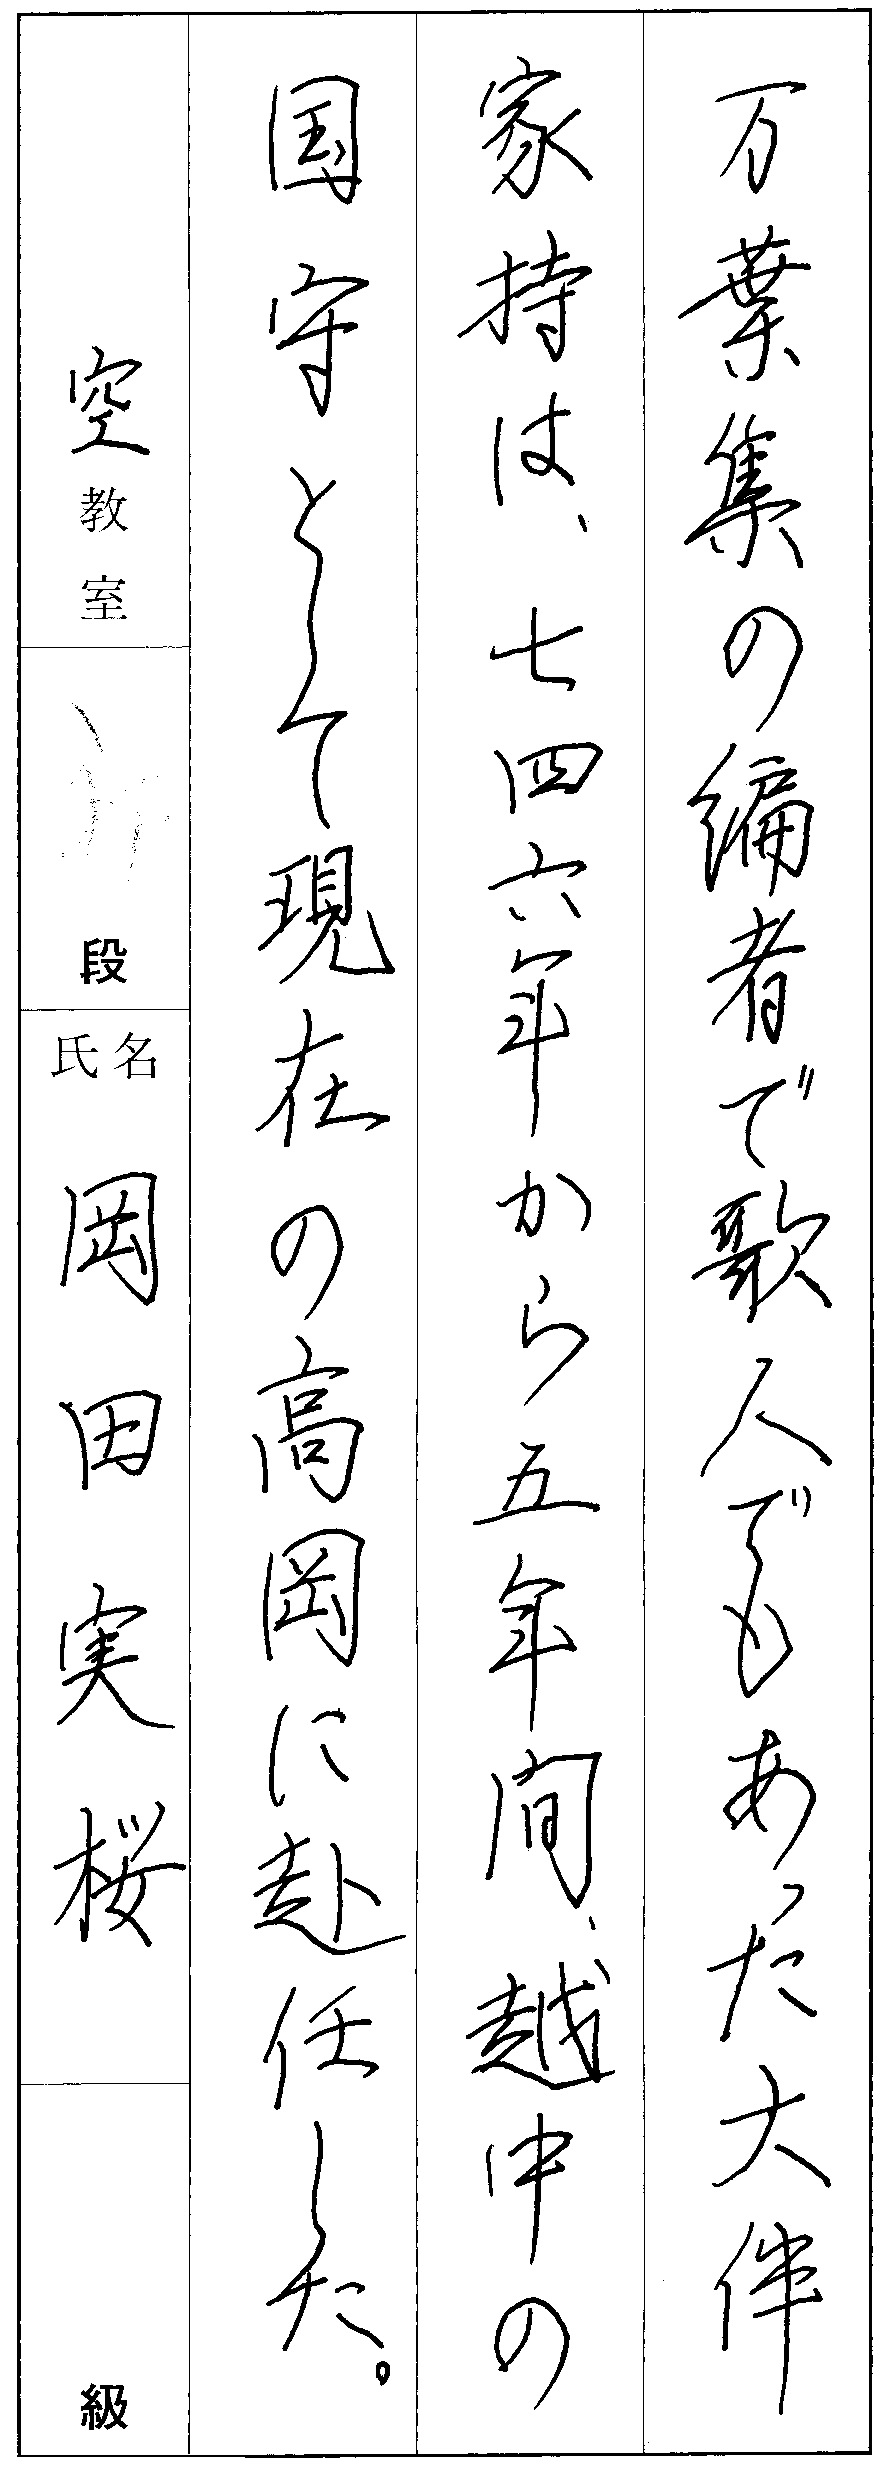 万葉集の編者で歌人でもあった大伴
家持は、七四六年から五年間、越中の
国守として現在の高岡に赴任した。
空教室
段
氏名
岡田実桜
級